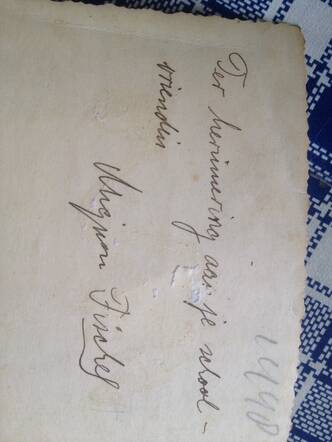 Ter herinnering aan je school-
vriendin
Mignon Fischel
1448